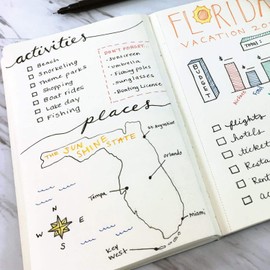 activities
Beach
Snorkeling
Theme parks
Shopping
Boat rides
Lake day
Fishing
DON'T FORGET:
sunscreen
umbrella
Fishing poles
sunglasses
Boating License
places
THE SUN SHINE STATE
St. Augustine
Orlando
Tampa
Miami
Key West
N
W
E
S
FLORIDA
VACATION 20
BUDGET
flights
hotels
ticket
Resta
Rent